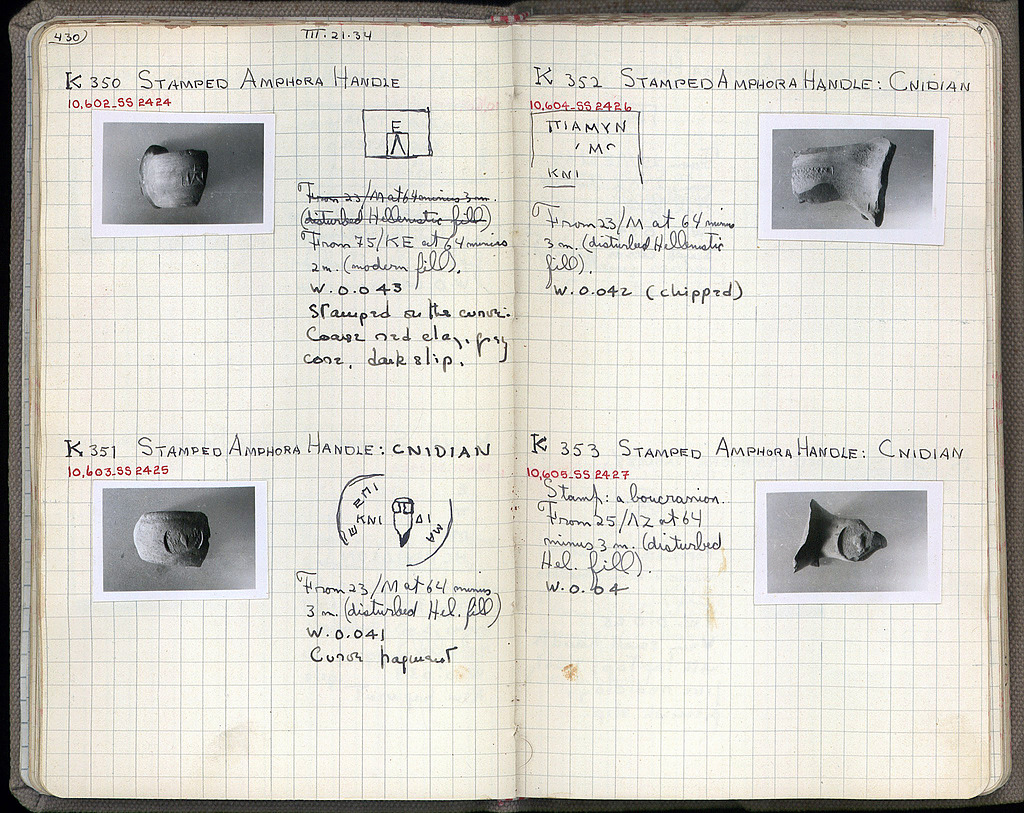 430
III.21.34
K 350 STAMPED AMPHORA HANDLE
10,602-SS 2424
E
Λ
From 23/M at 64 minus 3 m.
(disturbed Hellenistic fill)
From 75/KE at 64 minus
2 m. (modern fill).
W. 0.043
Stamped on the curve.
Coarse red clay, grey
core, dark slip.
K 351 STAMPED AMPHORA HANDLE: CNIDIAN
10,603-SS 2425
KNI ΔΙ
From 23/M at 64 minus
3 m. (disturbed Hel. fill)
W. 0.041
Curve fragment
K 352 STAMPED AMPHORA HANDLE: CNIDIAN
10,604-SS 2426
ΠΙΑΜΥΝ
KNI
From 23/M at 64 minus
3 m. (disturbed Hellenistic
fill).
W. 0.042 (chipped)
K 353 STAMPED AMPHORA HANDLE: CNIDIAN
10,605-SS 2427
Stamp: a boucranion.
From 25/ΛΖ at 64
minus 3 m. (disturbed
Hel. fill).
W. 0.64